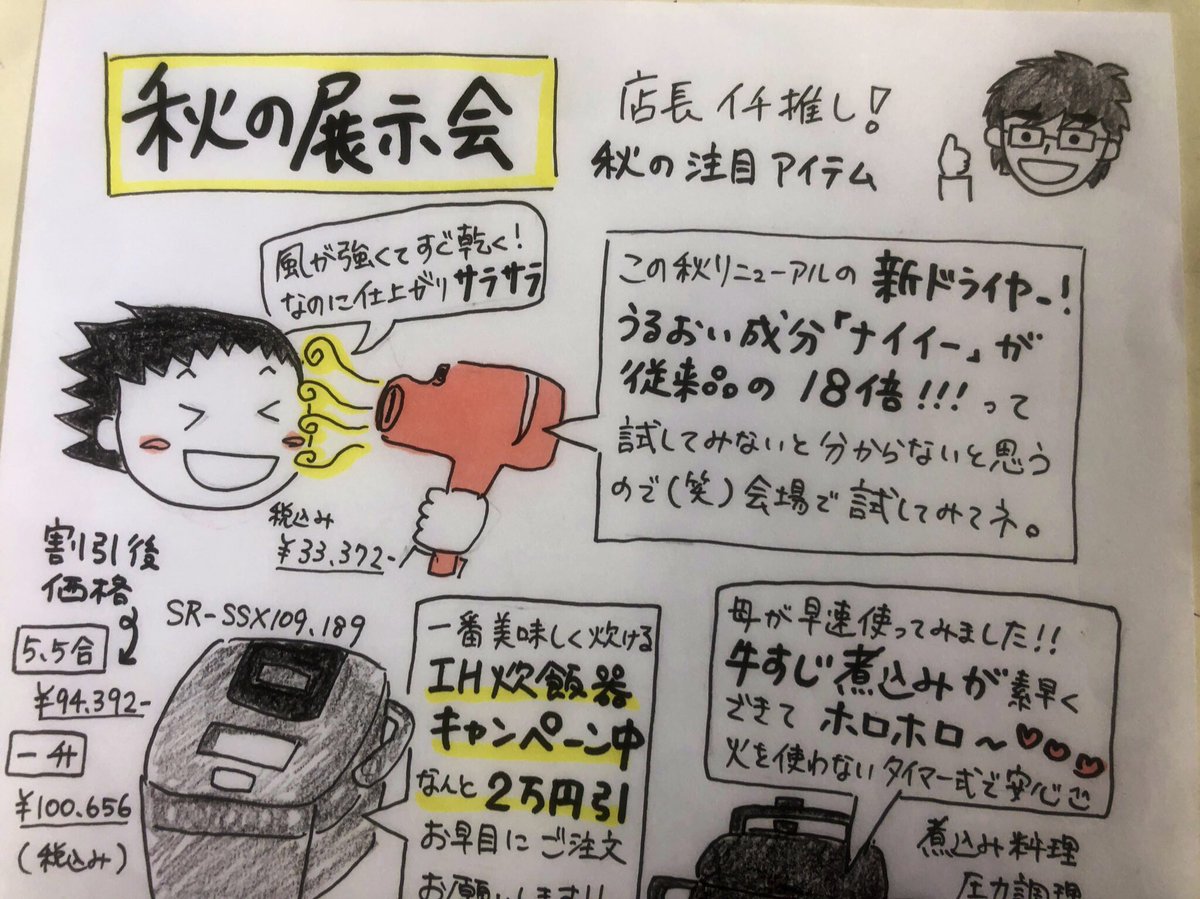 秋の展示会
店長 イチ推し!
秋の注目アイテム
風が強くてすぐ乾く!
なのに仕上がりサラサラ
この秋リニューアルの 新ドライヤー!
うるおい成分「ナイイー」が
従来品の 18倍!!! って
試してみないと分からないと思う
ので(笑)会場で試してみてネ。
税込み
¥33.372-
割引後
価格
5.5合
¥94.392-
一升
¥100.656
(税込み)
SR-SSX109.189
一番美味しく炊ける
IH炊飯器
キャンペーン中
なんと 2万円引
お早目に ご注文
お願いします!!
母が早速使ってみました!!
牛すじ煮込みが素早く
できて ホロホロ〜
火を使わないタイマー式で安心
煮込み料理
圧力調理